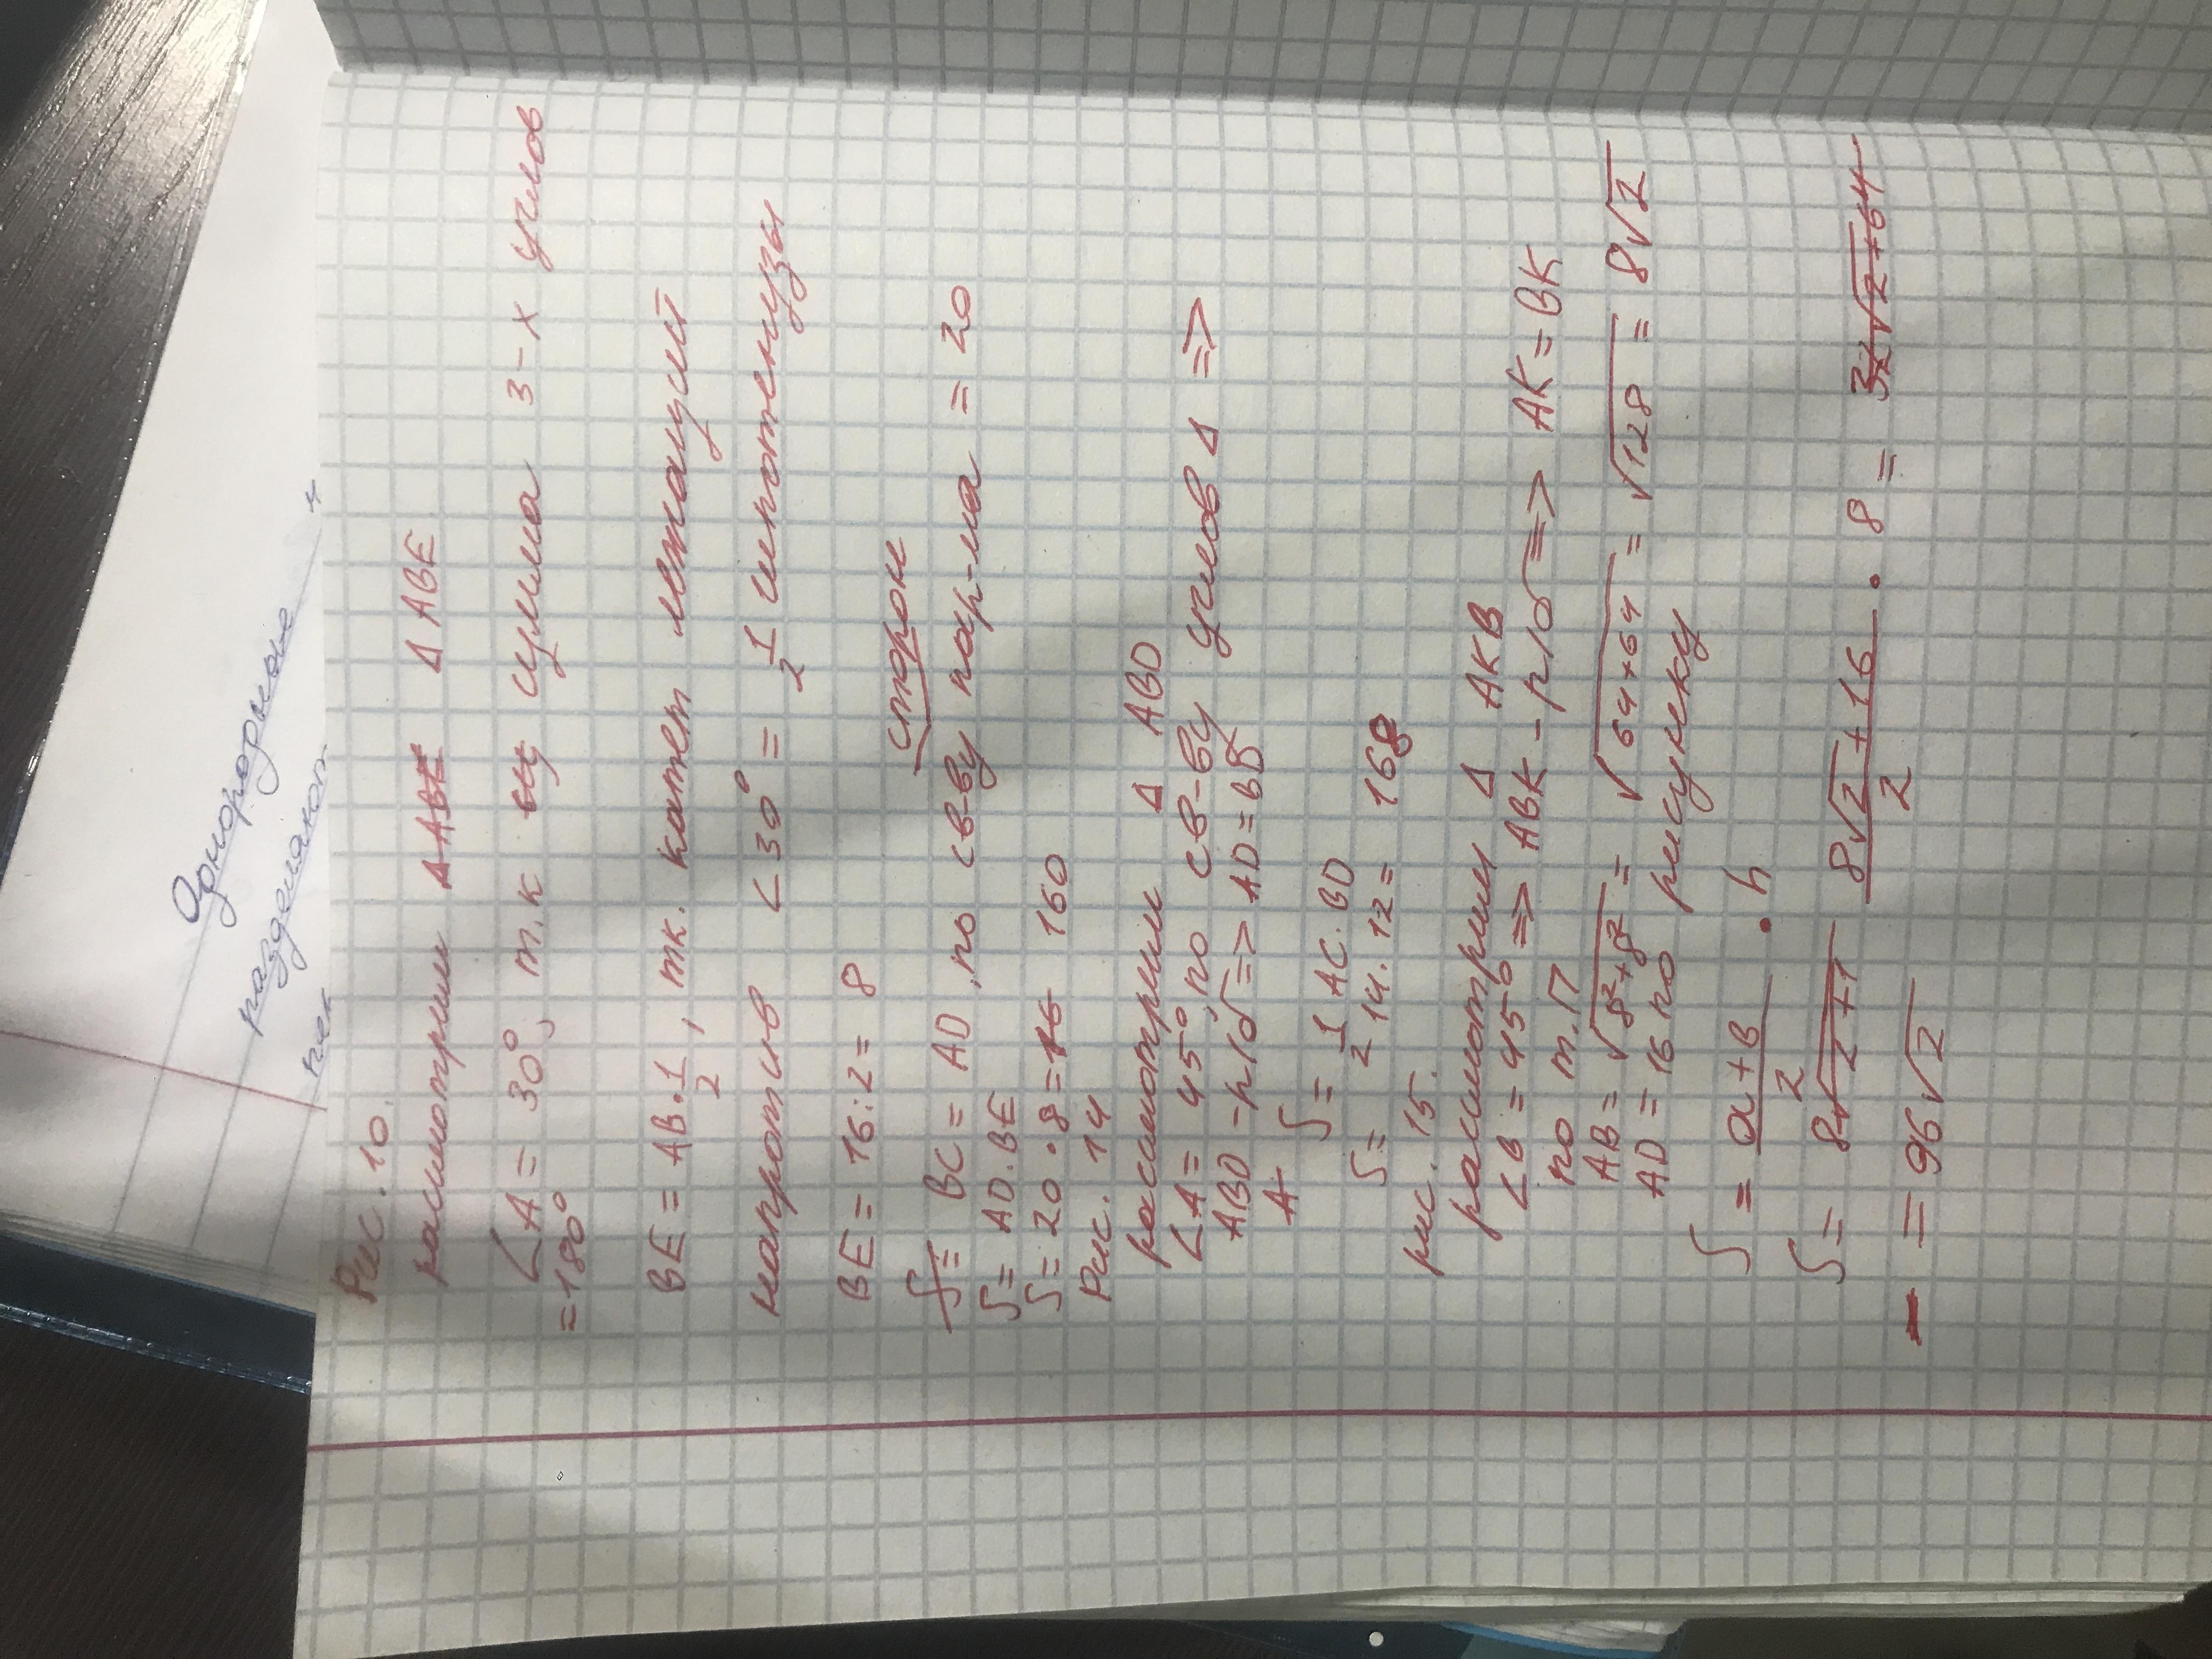 Однородные
разделяют
Рис. 10.
рассмотрим ΔABE ΔABE
∠A = 30°, т.к сумма 3-х углов
= 180°
BE = AB · 1/2, тк. катет лежащий
напротив ∠30° = 1/2 гипотенузы
BE = 16:2 = 8
сторон
S= BC = AD, по св-ву пар-ма = 20
S = AD · BE
S = 20 · 8 = 16 160
Рис. 14
рассмотрим Δ ABD
∠A = 45°, по св-ву углов Δ =>
ABD - р/б => AD = BD
A
S = 1/2 AC · BD
S = 14 · 12 = 168
рис. 15.
рассмотрим Δ AKB
∠B = 45° => ABK - р/б => AK = BK
по т.П
AB = √8²+8² = √64+64 = √128 = 8√2
AD = 16 по рисунку
S = a+b/2 · h
S = 8√2+1 8√2+16/2 · 8 = 32√2+64
= 96√2